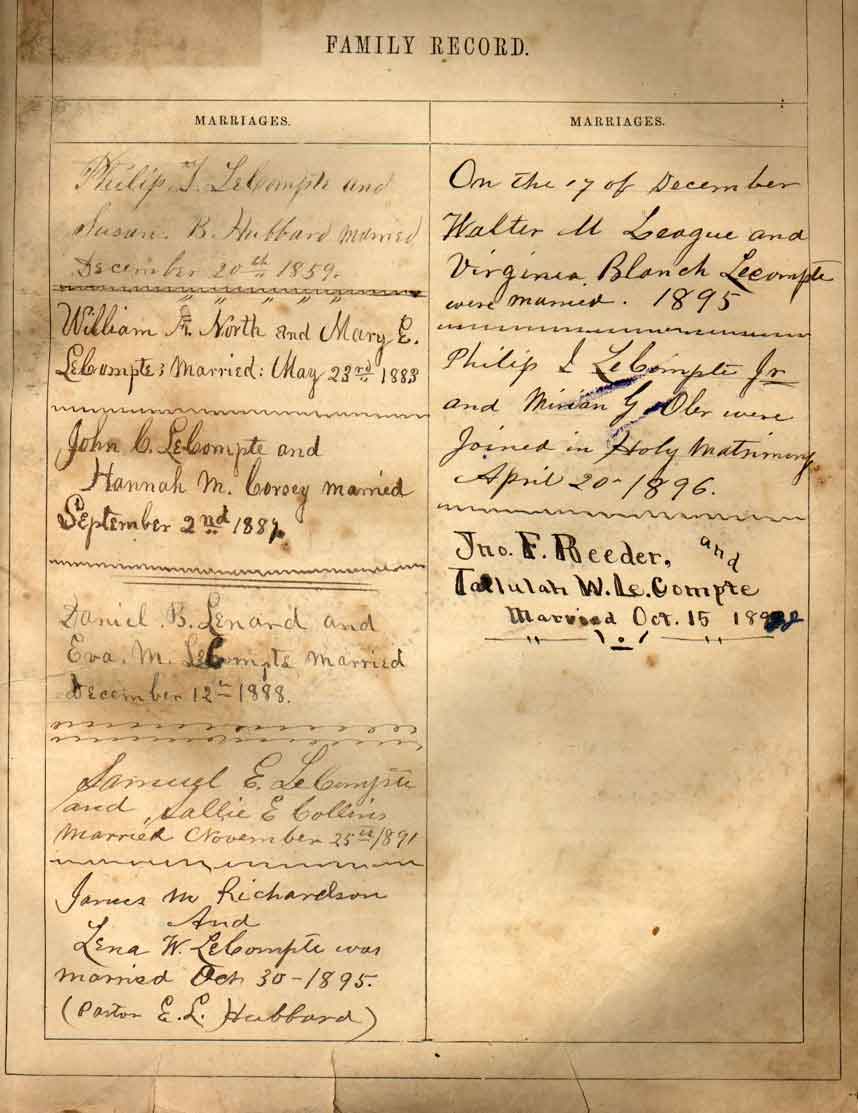 FAMILY RECORD.
MARRIAGES.
Philip T. LeCompte and
Susan. B. Hubbard married
December 20th 1859.
William H. North and Mary E.
LeCompte; Married: May 23rd 1883
John C. LeCompte and
Hannah M. Corsey married
September 2nd 188
Daniel. B. Lenard and
Eva. M. LeCompte, married
December 12th 1888.
Samuel E. LeCompte
and Sallie E Collins
Married November 25th 1891
James M Richardson
And
Lena W. LeCompte was
married Oct 30-1895.
(Pastor E. L. Hubbard)
MARRIAGES.
On the 17 of December
Walter M League and
Virginia Blanch Lecompte
were married. 1895
Philip LeCompte Jr
and Mirian G Ober were
Joined in Holy Matrimony
April 20-1896.
Jno. F. Reeder, and
Tallulah W. Le.Compte
Married Oct. 15 189